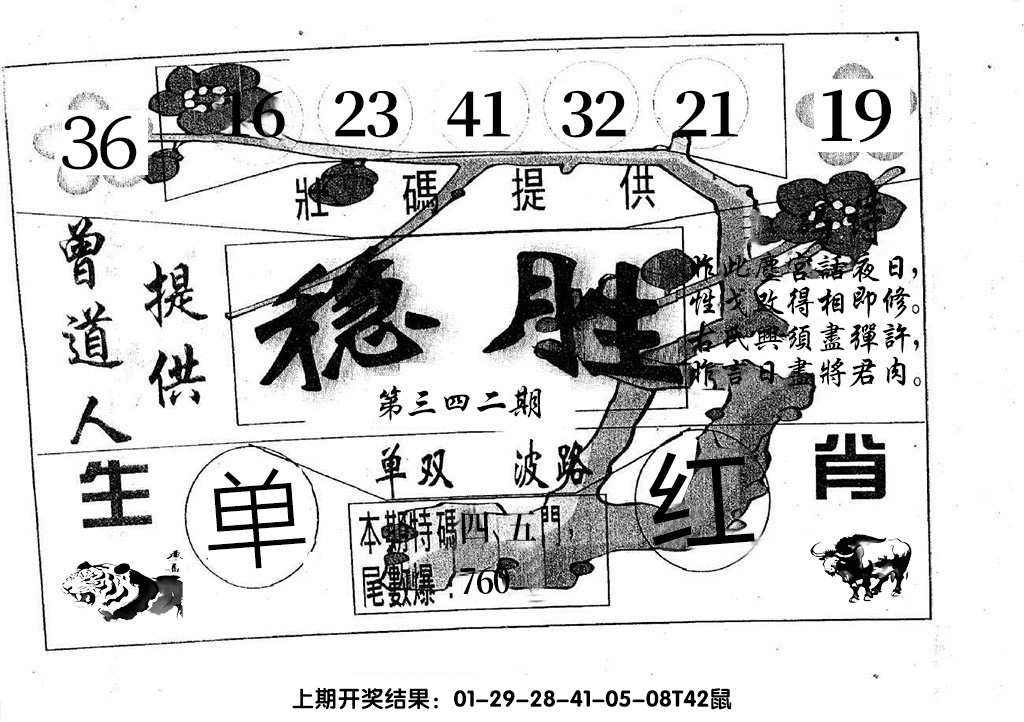 36 16 23 41 32 21 19
壯碼提供
特
曾道人
提供
稳胜
昨此塵宮話夜日，
性戈敗得相即修。
古民興須盡彈許，
昨言日盡將君肉。
第三四二期
单双 波路
生肖
单
红
本期特碼四、五門，
尾數爆：760
上期开奖结果：01-29-28-41-05-08T42鼠